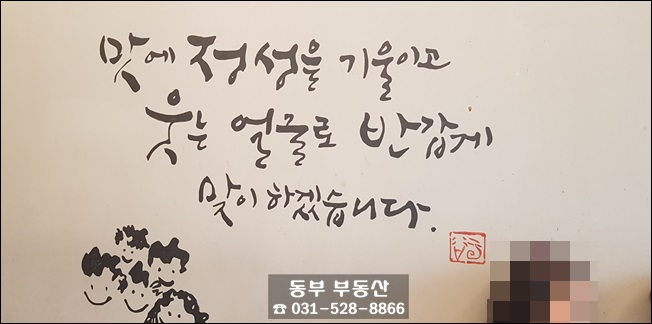 맛에 정성을 기울이고
웃는 얼굴로 반갑게
맞이하겠습니다.
동부 부동산
☎ 031-528-8866